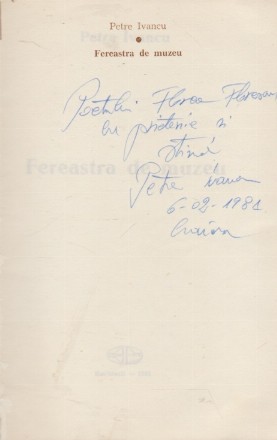 Petre Ivancu
Fereastra de muzeu
Poetului Florea
cu prietenie și
stimă
Petre Ivancu
6-02-1981
Craiova
Fereastra de muzeu